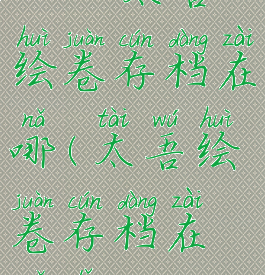 huì juàn cún dàng zài
绘卷存档在
nǎ tài wú huì
哪(太吾绘
juàn cún dàng zài
卷存档在